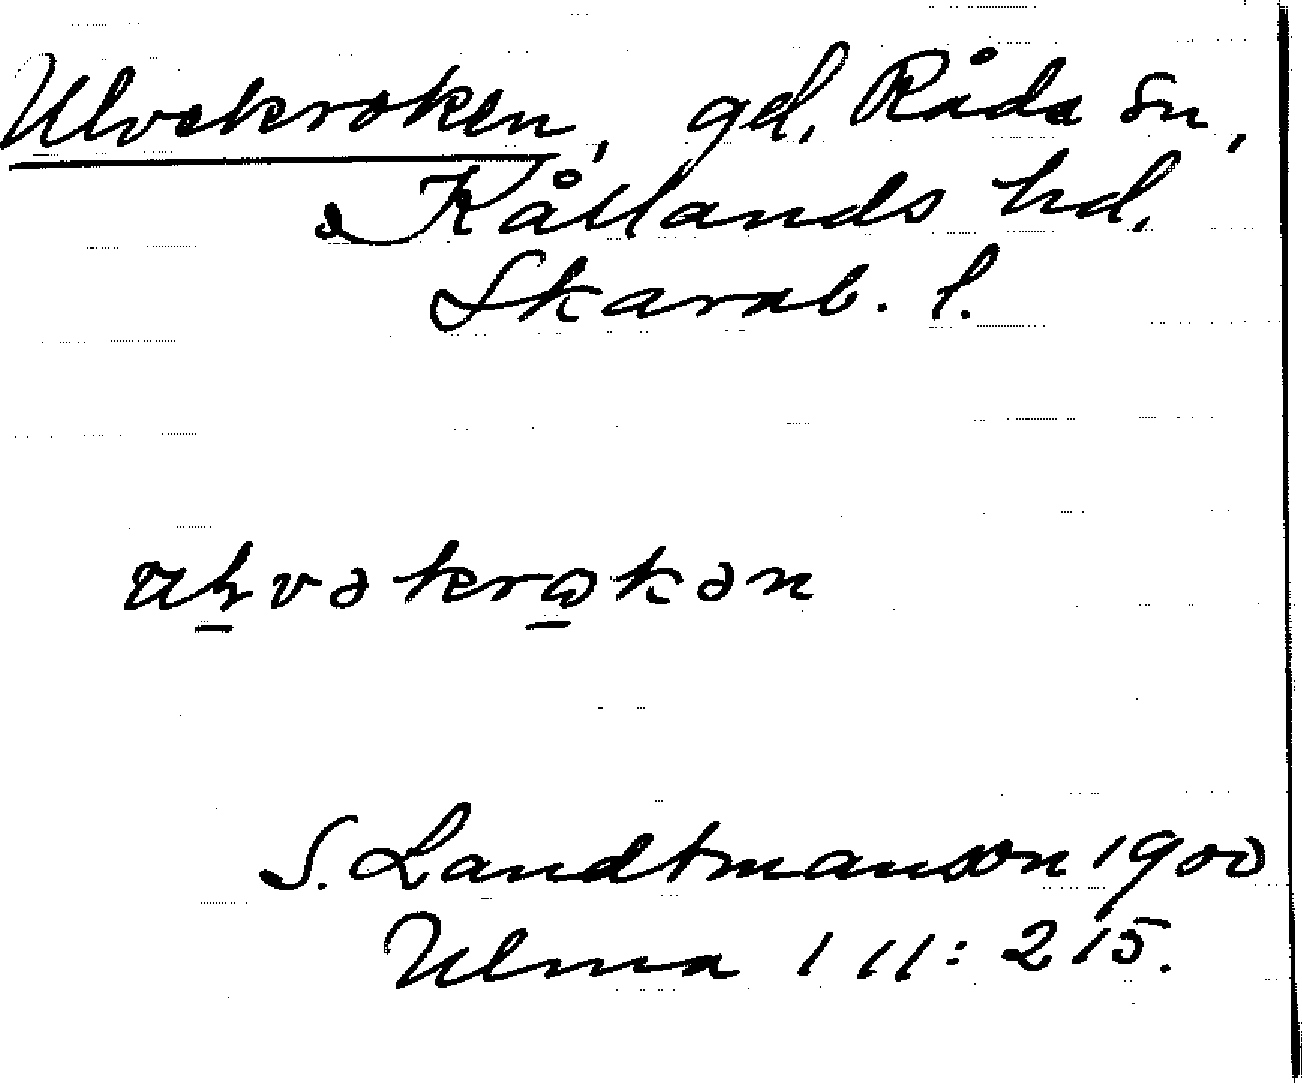 Ulvekroken, gd, Råda sn,
Kållands hd.
Skarab. l.
S. Landtmanson 1900
Ulma 111:215.